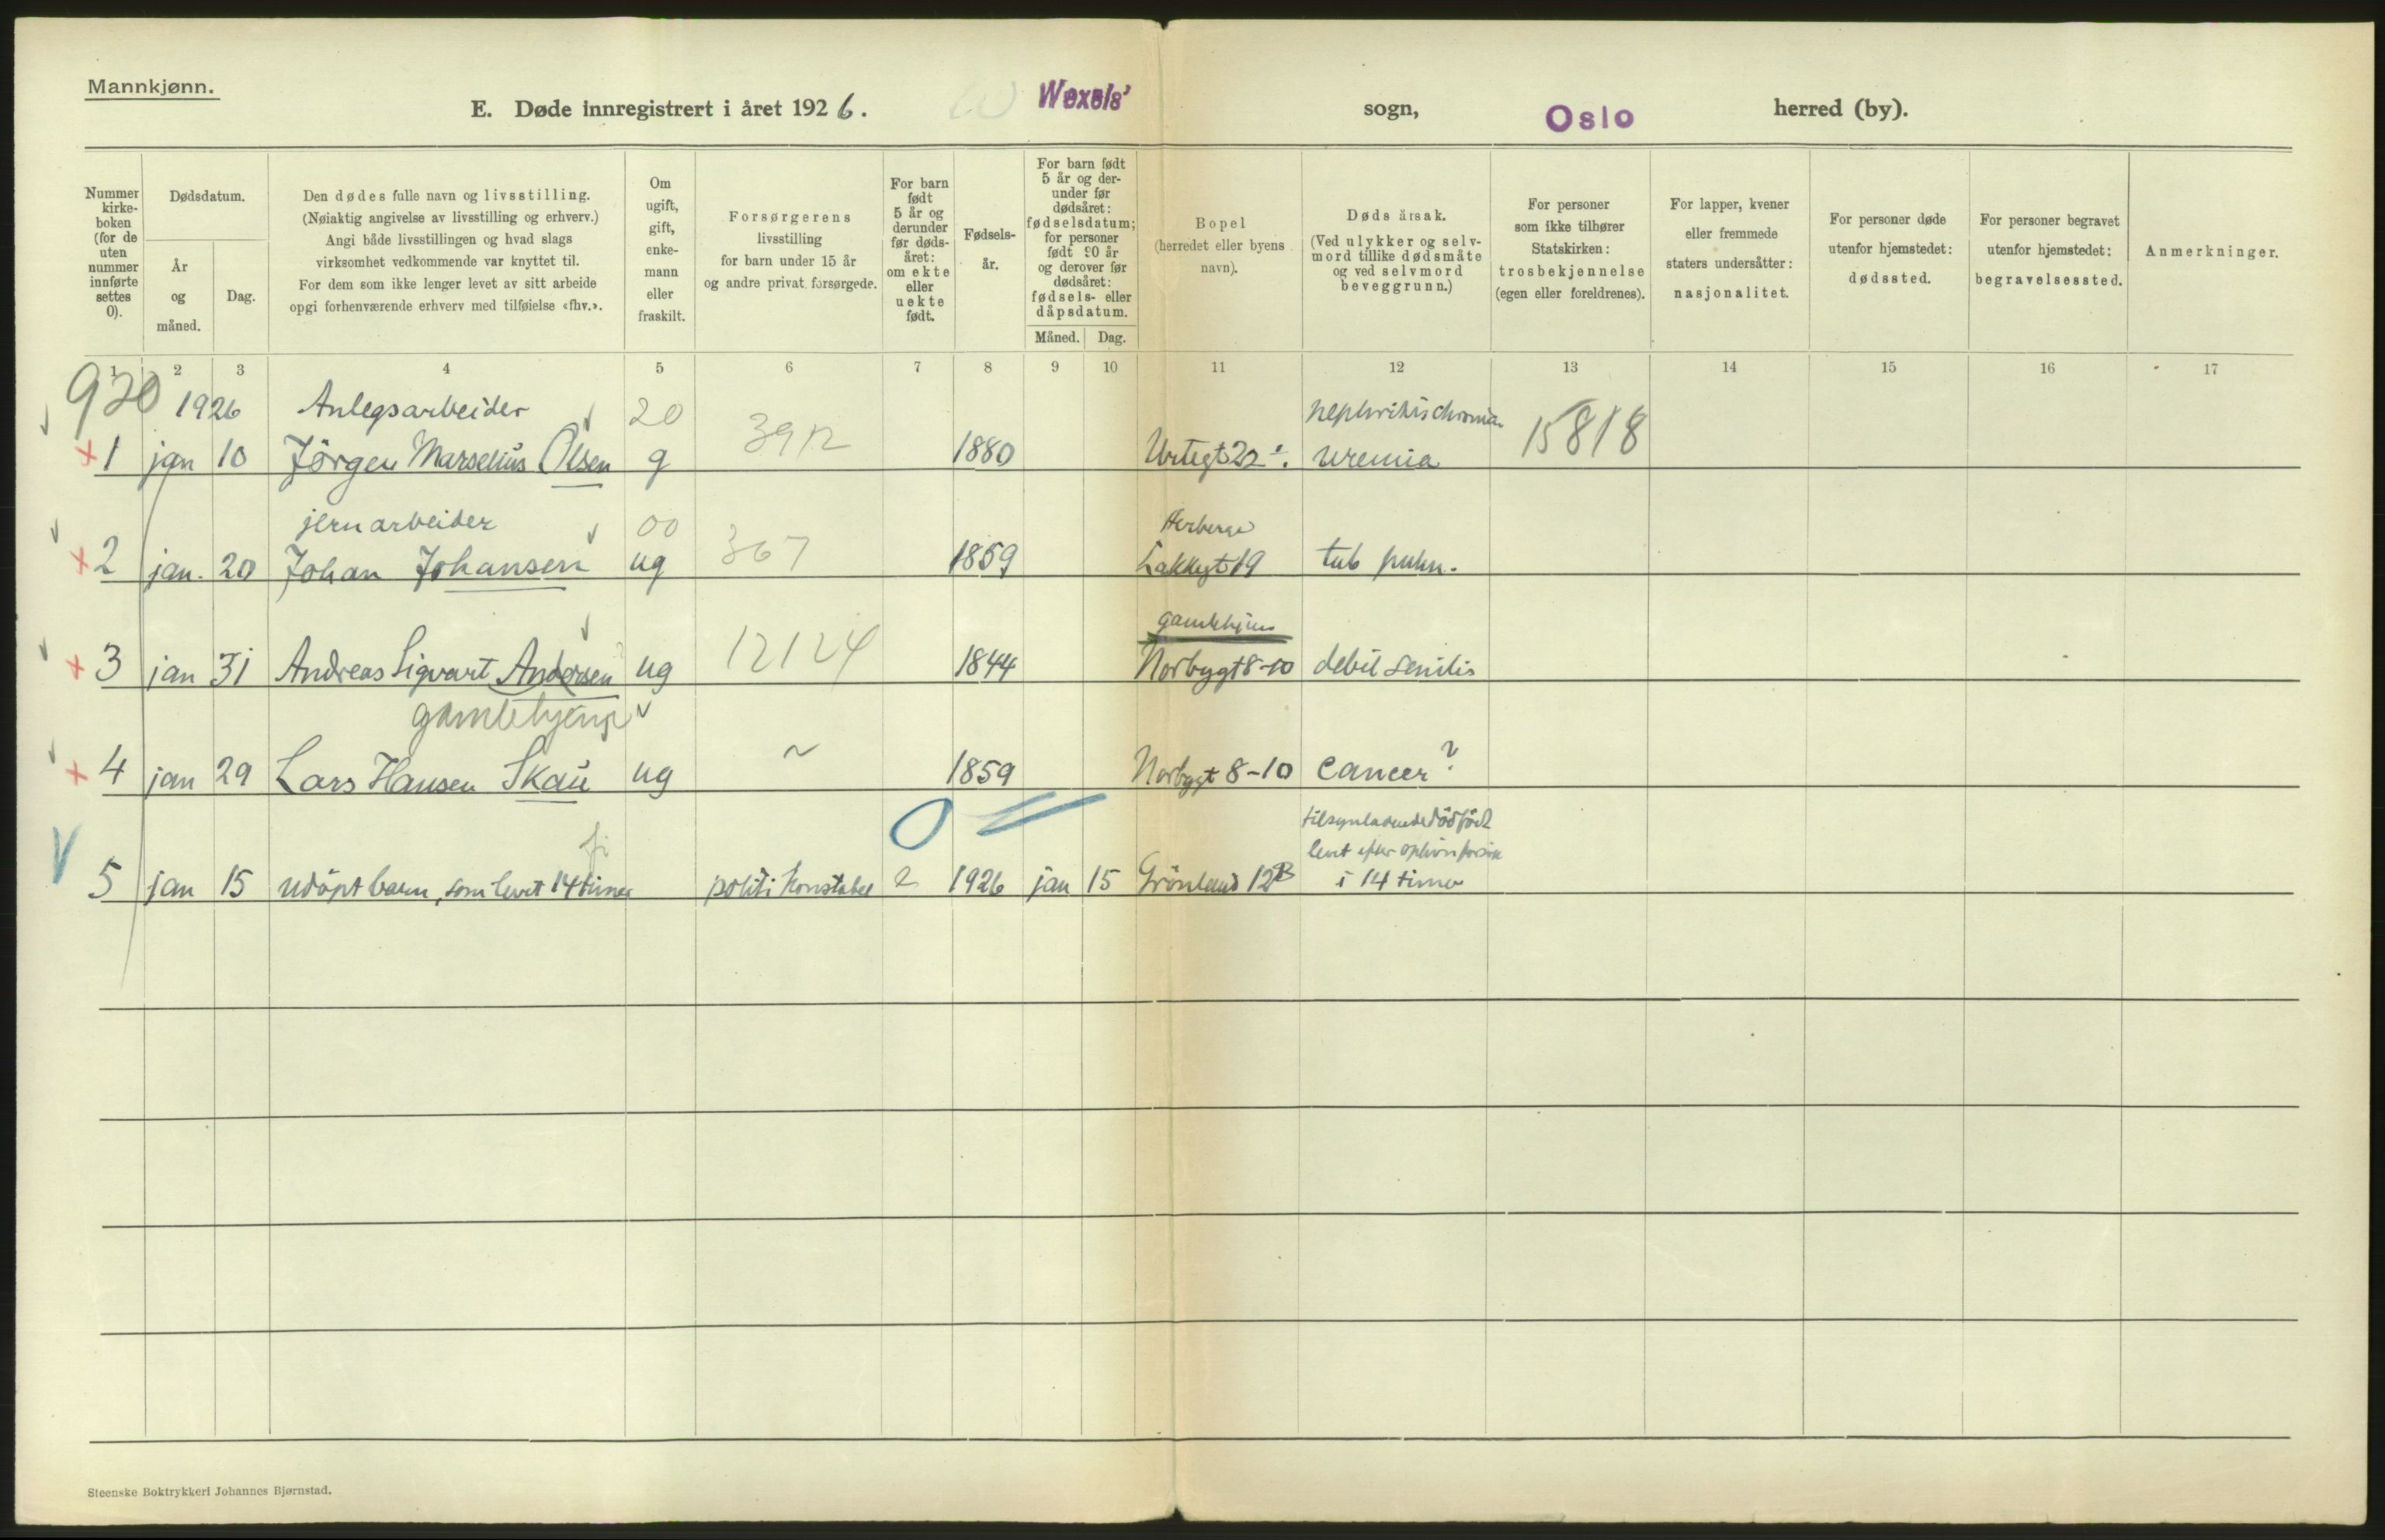 Mannkjønn.
E. Døde innregistrert i året 1926. Wexels' sogn, Oslo herred (by).
Nummer kirke-boken (for de uten nummer innførte settes 0).
Dødsdatum.
År og måned.
Dag.
Den dødes fulle navn og livsstilling.
(Nøiaktig angivelse av livsstilling og erhverv.)
Angi både livsstillingen og hvad slags
virksomhet vedkommende var knyttet til.
For dem som ikke lenger levet av sitt arbeide
opgi forhenværende erhverv med tilføielse «fhv.».
Om ugift, gift, enke-mann eller fraskilt.
Forsørgerens
livsstilling
for barn under 15 år
og andre privat forsørgede.
For barn født 5 år og derunder før døds-året: om ekte eller uekte født.
Fødsels-år.
For barn født 5 år og der-under før dødsåret: fødselsdatum; for personer født 90 år og derover før dødsåret: fødsels- eller dåpsdatum.
Måned. Dag.
Bopel
(herredet eller byens navn).
Døds årsak.
(Ved ulykker og selv-mord tillike dødsmåte og ved selvmord beveggrunn.)
For personer som ikke tilhører Statskirken: trosbekjennelse (egen eller foreldrenes).
For lapper, kvener eller fremmede staters undersåtter: nasjonalitet.
For personer døde utenfor hjemstedet: dødssted.
For personer begravet utenfor hjemstedet: begravelsessted.
Anmerkninger.
1 2 3 4 5 6 7 8 9 10 11 12 13 14 15 16 17
920 1926 Anlegsarbeider 20 3912 nephritis chronica 15818
+ 1 jan 10 Jörgen Marselius Olsen g 1880 Urtegt 22 uremia
jernarbeider 00 367 Herberge
+ 2 jan. 20 Johan Johansen ug 1859 Lakkegt 19 tub pulm.
12124 gamlehjem
+ 3 jan 31 Andreas Sigvart Andersen ug 1844 Norbygt 8-10 debil senilis
gamlehjem
+ 4 jan 29 Lars Hansen Skau ug ~ 1859 Norbygt 8-10 cancer ?
0 tilsynladende dödfödt
levet efter
5 jan 15 udöpt barn, som levet 14 timer politi konstabel 2 1926 jan 15 Grönland 12B i 14 timer
Steenske Boktrykkeri Johannes Bjørnstad.